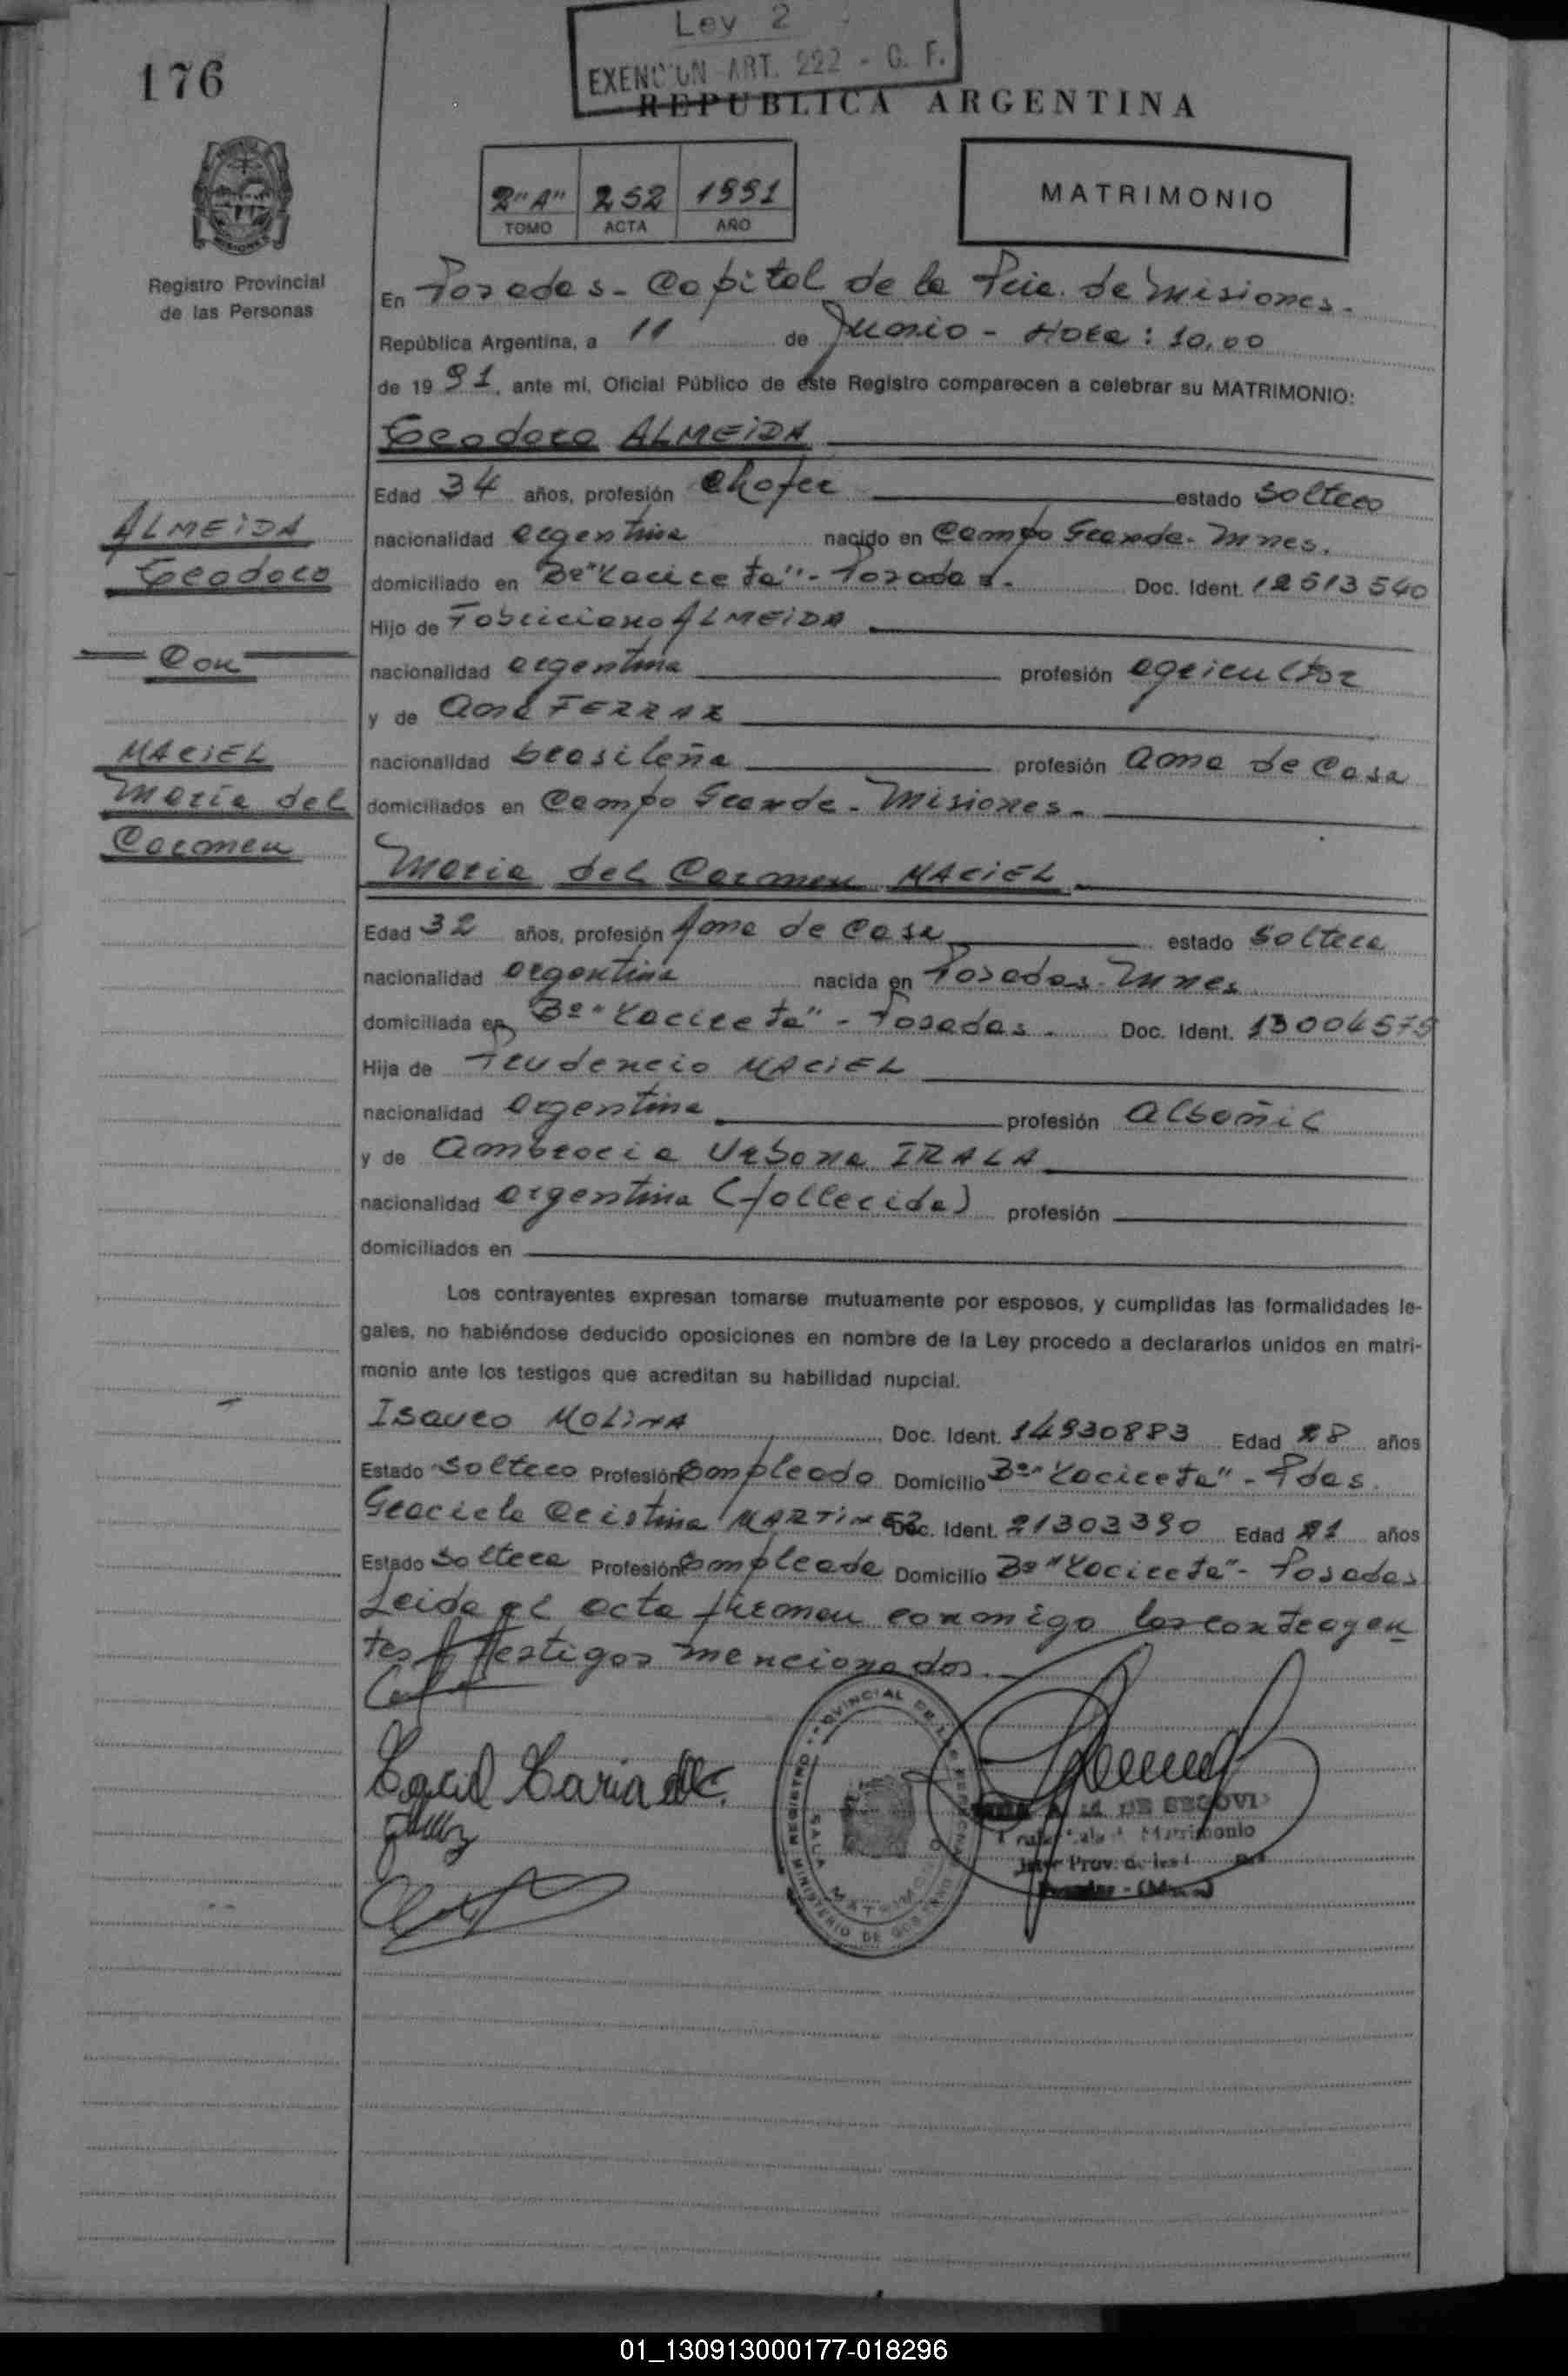 Ley 2
EXENCION ART. 222 - C. F.
176
REPUBLICA ARGENTINA
2"A" 252 1991
TOMO ACTA AÑO
MATRIMONIO
Registro Provincial
de las Personas
En Posadas - Capital de la Pcia. de Misiones.
República Argentina, a 11 de Junio - Hora: 10,00
de 1991, ante mi, Oficial Público de este Registro comparecen a celebrar su MATRIMONIO:
Teodoro ALMEIDA
Edad 34 años, profesión chofer estado soltero
ALMEIDA
Teodoro
Con
MACIEL
María del
Carmen
nacionalidad argentina nacido en Campo Grande - Mnes.
domiciliado en Bº "Yacireta" - Posadas. Doc. Ident. 12613540
Hijo de ALMEIDA
nacionalidad argentina profesión agricultor
y de Ana FERRAZ
nacionalidad brasileña profesión ama de casa
domiciliados en Campo Grande - Misiones.
María del Carmen MACIEL
Edad 32 años, profesión Ama de casa estado soltera
nacionalidad argentina nacida en Posadas - Mnes
domiciliada en Bº "Yacireta" - Posadas. Doc. Ident. 13004575
Hija de Prudencio MACIEL
nacionalidad argentina profesión albañil
y de Ambrocia Urbana IRALA
nacionalidad argentina (fallecida) profesión
domiciliados en
Los contrayentes expresan tomarse mutuamente por esposos, y cumplidas las formalidades le-
gales, no habiéndose deducido oposiciones en nombre de la Ley procedo a declararlos unidos en matri-
monio ante los testigos que acreditan su habilidad nupcial.
Isauro MOLINA Doc. Ident. 14930883 Edad 28 años
Estado soltero Profesión empleado Domicilio Bº "Yacireta" - Pdas.
Graciela Cristina MARTINEZ Doc. Ident. 21303390 Edad 21 años
Estado soltera Profesión empleada Domicilio Bº "Yacireta" - Posadas
Leida el acta firman conmigo los contrayen
tes y testigos mencionados.
Maciel Maria del C.
REGISTRO PROVINCIAL DE LAS PERSONAS
SALA MATRIMONIO
MINISTERIO DE GOBIERNO
DE SEGOVIA
Matrimonio
01_130913000177-018296